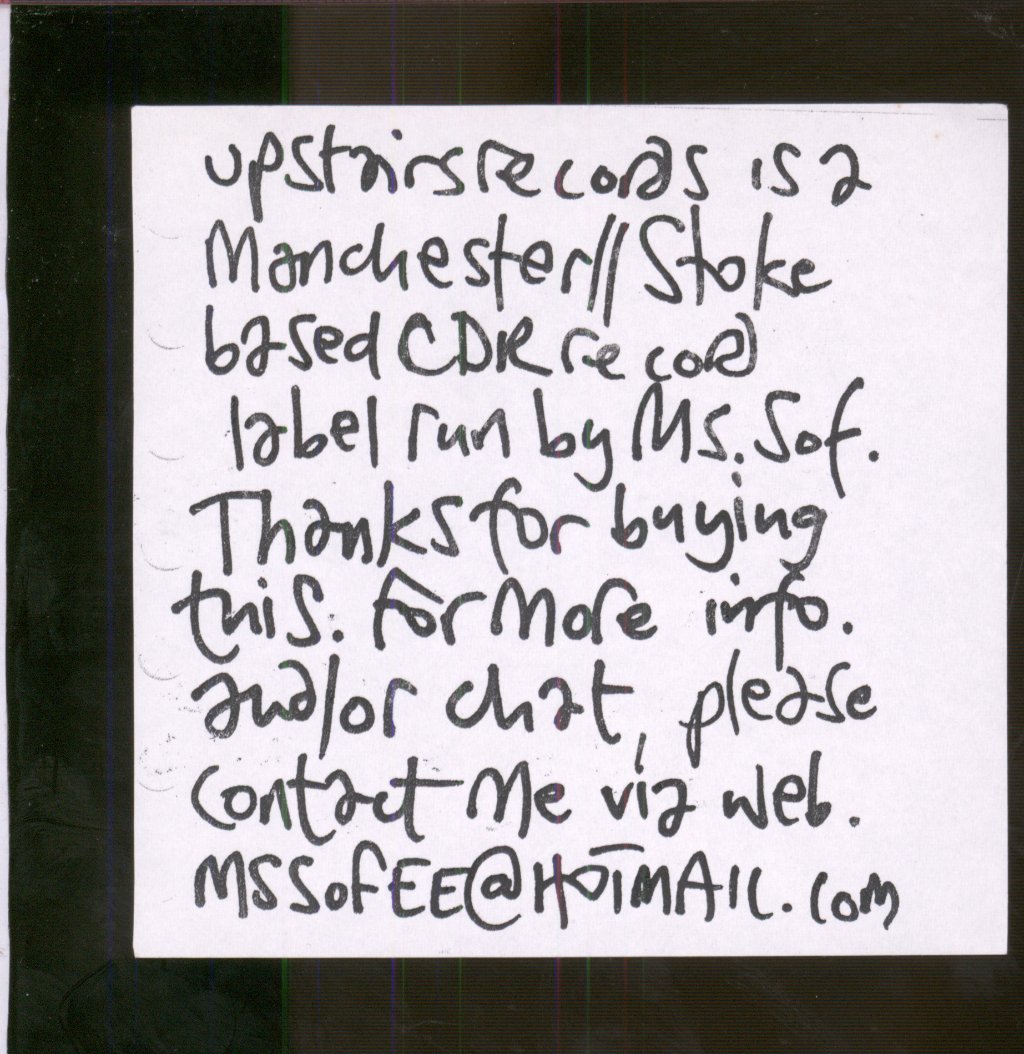 upstairsrecords is a
Manchester//Stoke
based CDR record
label run by Ms. Sof.
Thanks for buying
this. For More info.
and/or chat, please
contact Me via web.
MSSofEE@HOTMAIL.com